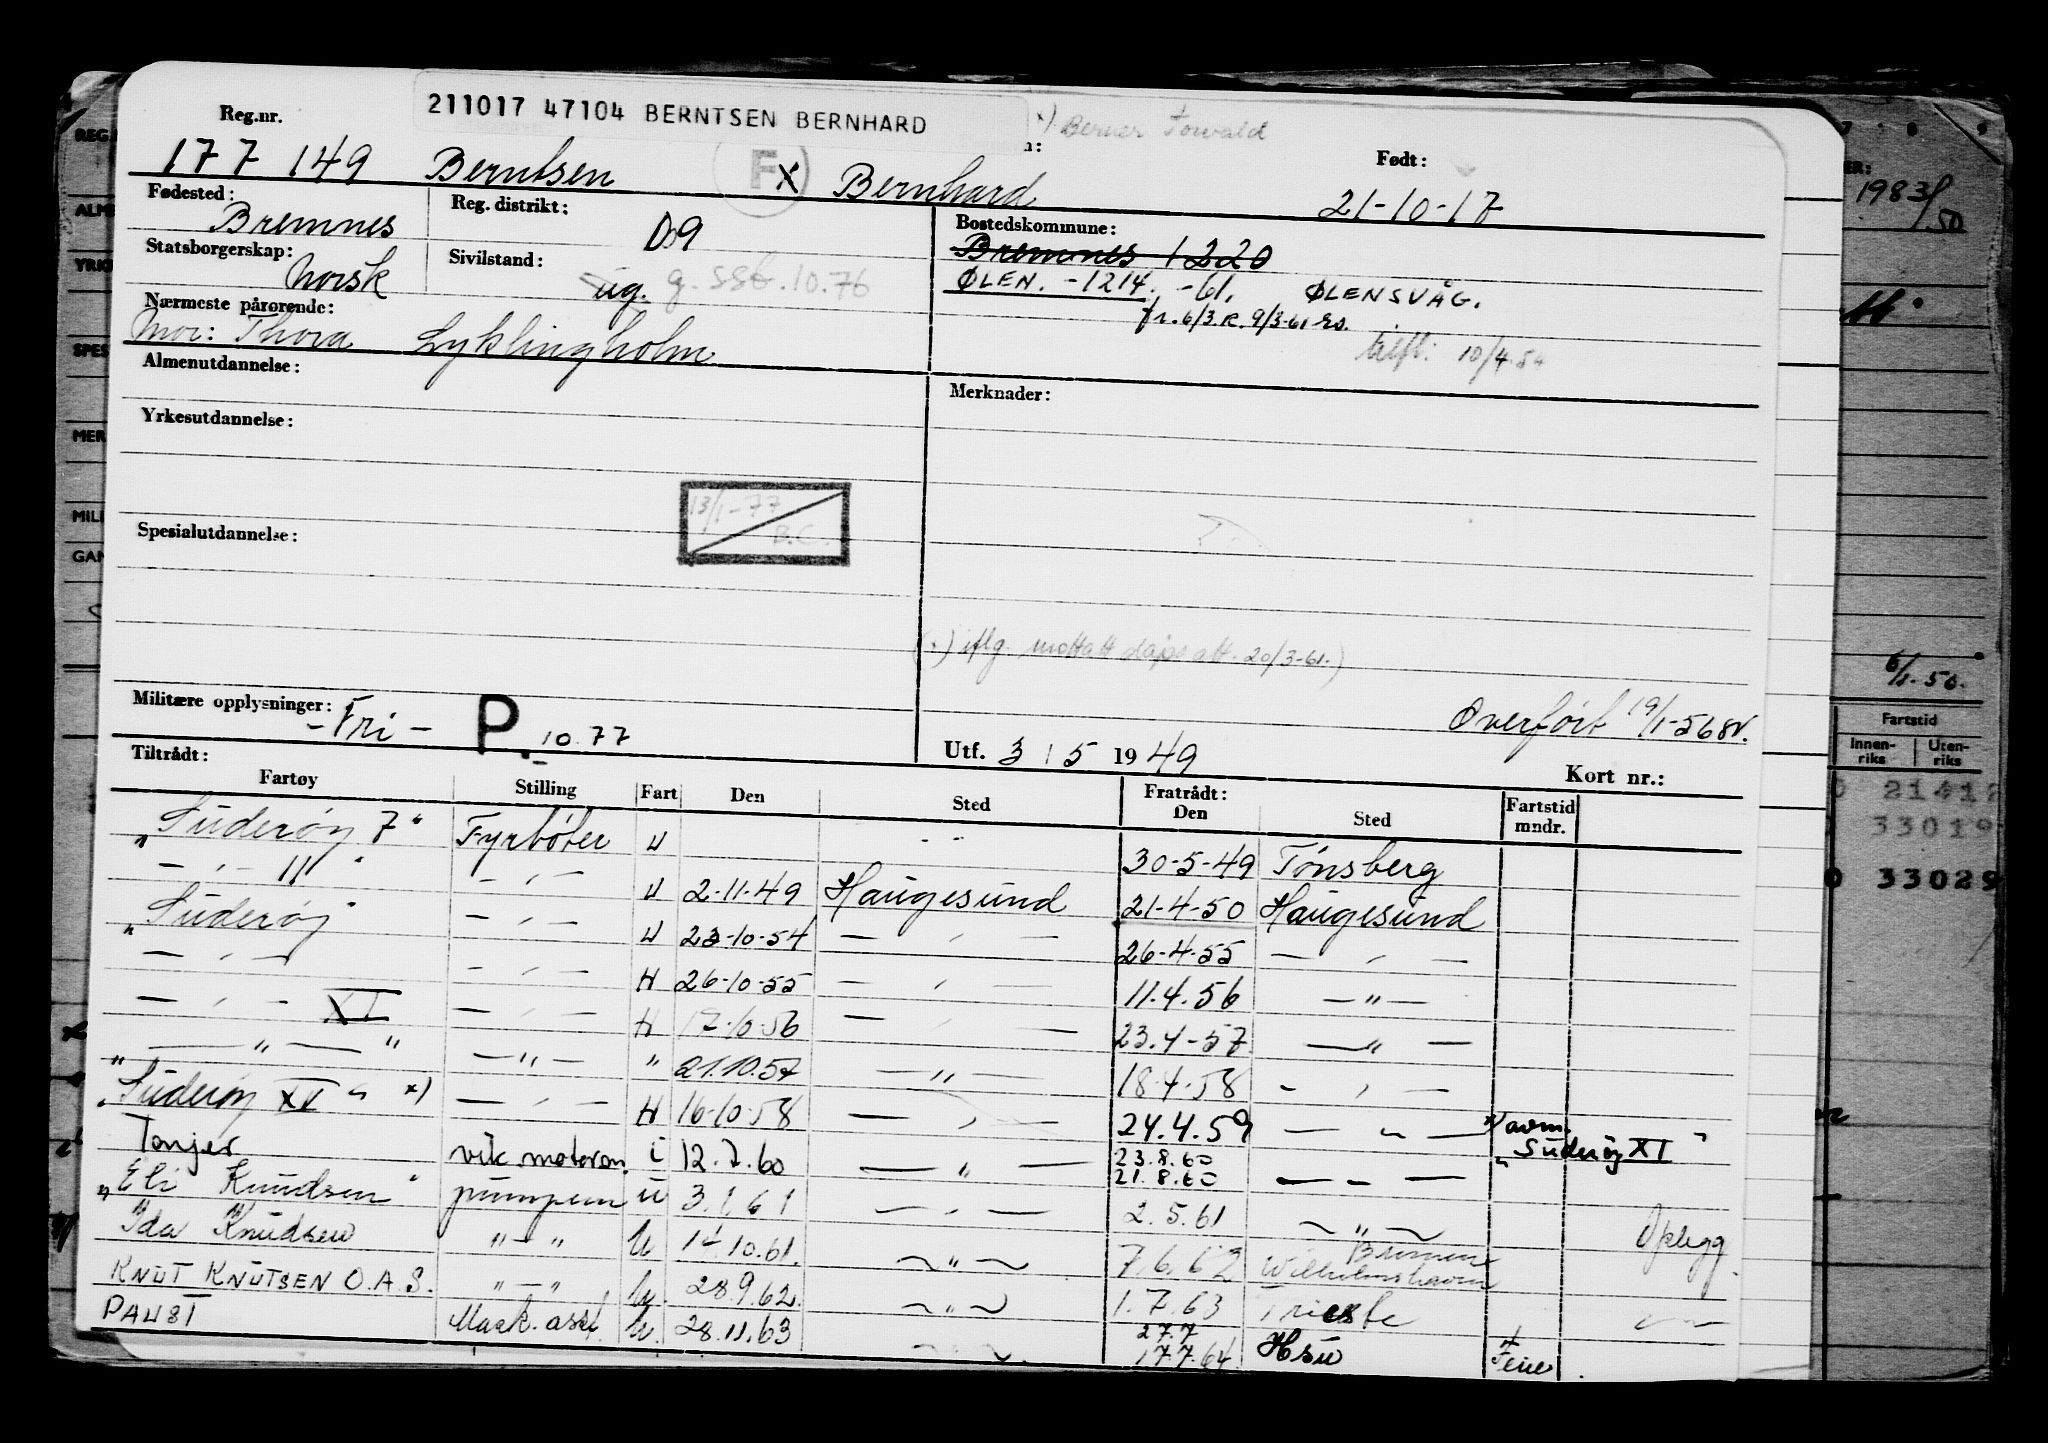 211017 47104 BERNTSEN BERNHARD
x) Berner Towald
Reg.nr.
177 149 Berntsen F x Bernhard
Født:
21-10-17
Fødested: Bremnes
Reg. distrikt: 09
Bostedskommune:
Bremnes 1220
ØLEN. -1214. -61. ØLENSVÅG.
fr. 6/3. R. 9/3-61
tilfl: 10/4.84
Statsborgerskap: Norsk
Sivilstand: ug. g. SSB.10.76
Nærmeste pårørende:
Mor: Thora Lyklingholm
Almenutdannelse:
Merknader:
Yrkesutdannelse:
13/1-77
B.C.
Spesialutdannelse:
(x) iflg. mottatt dåps att. 20/3-61.)
Militære opplysninger: -Fri- P. 10.77
Overført 19/1-56
Utf. 3 / 5 1949
Kort nr.:
Tiltrådt:
Fartøy Stilling Fart Den Sted Fratrådt: Den Sted Fartstid mndr.
"Suderøy 7" Fyrbøter U - " - 30-5-49 Tønsberg
- " - 11" - " - U 2-11-49 Haugesund 21-4-50 Haugesund
"Suderøy" - " - U 23-10-54 - " - 26-4-55 - " -
- " - - " - H 26-10-55 - " - 11.4.56 - " -
- " - XI - " - H 17-10-56 - " - 23.4-57 - " -
" - " - " - " - " 21.10.57 - " - 18-4-58 - " -
"Suderøy XV" x) - " - H 16-10-58 - " - 24.4.59 - " - x) avm. "Suderøy XI"
Tonjer vik. motorm. i 12.7.60 - " - 23.8.60
21.8.60 - " -
"Eli Knudsen" pumpem u 3.1.61 - " - 2.5.61 - " - Opplegg
"Ida Knudsen" " - " U 14.10.61. - " - 7.6.62 Wilhelmshaven
KNUT KNUTSEN O.A.S. " - " U. 28.9.62. - " - 1.7.63 Trieste - " -
PAUST Mask. asst. U. 28.11.63 - " - 27.7
17.7.64 Hsu Ferie.
REG.
ALM
YRK
SPES
MER
MILI
GAN
ER:
1983/50
6/1-50.
Fartstid
Innen-riks Uten-riks
21412
33019
33029